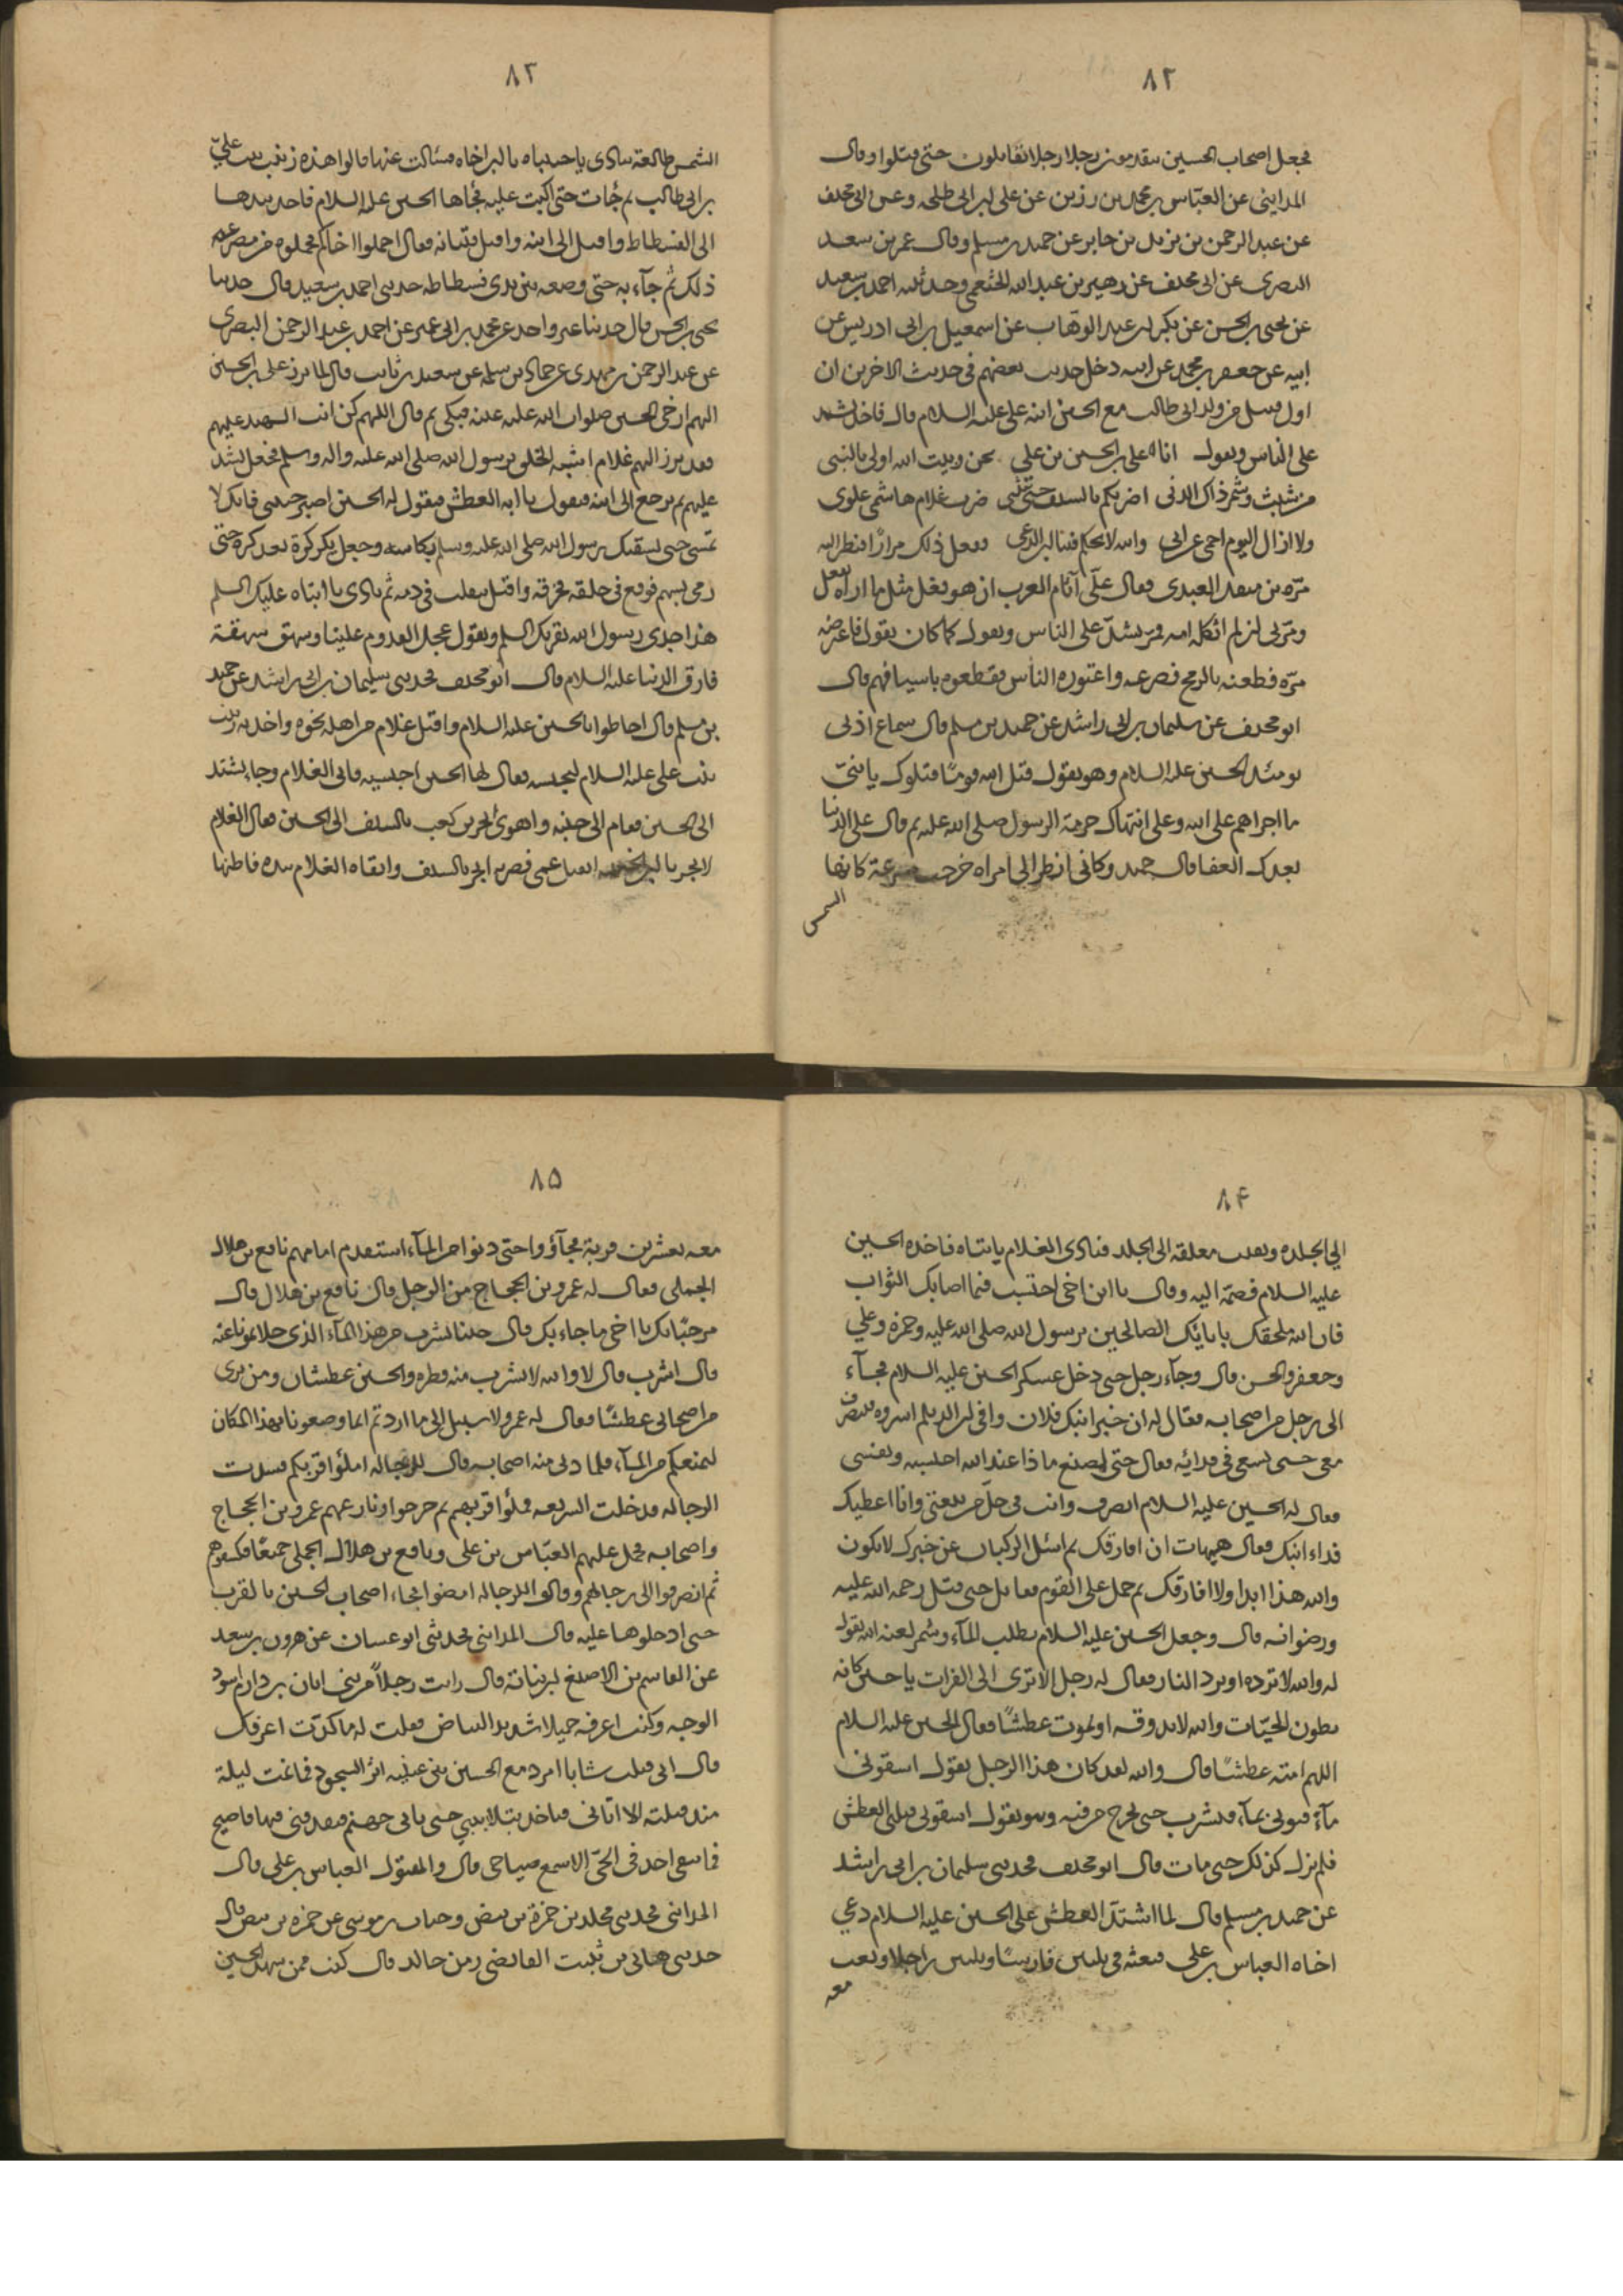 ٨٢
فجعل اصحاب الحسين يتقدمون رجلا رجلا يقاتلون حتى قتلوا وقال
المدايني عن العباس بن محمد بن رزين عن علي بن ابي طلحه وعن ابي مخنف
عن عبد الرحمن بن يزيد بن جابر عن حميد بن مسلم وقال عمر بن سعد
البصرى عن ابى مخنف عن زهير بن عبد الله الخثعمي وحدثنيه احمد بن سعيد
عن يحيى بن الحسن عن بكر بن عبد الوهاب عن اسمعيل بن ابى ادريس عن
ابيه عن جعفر بن محمد عن ابيه دخل حديث بعضهم في حديث الاخرين ان
اول قتيل من ولد ابى طالب مع الحسين ابنه علي عليه السلام قال فاخذ يشد
على الناس ويقول انا علي بن الحسين بن علي نحن وبيت الله اولى بالنبى
من شبث وشمر ذاك الدنى اضربكم بالسيف حتى ضرب غلام هاشمي علوى
ولا ازال اليوم احمى عن ابى والله لا يحكم فينا ابن الدعى ففعل ذلك مرارًا فنظر اليه
مرّه بن منقذ العبدى فقال علىّ آثام العرب ان هو فعل مثل ما اراه يفعل
ومرّ بى ان لم اثكله امه فمرّ يشدّ على الناس ويقول كما كان يقول فاعترضه
مرّه فطعنه بالرمح فصرعه واعتوره الناس فقطعوه باسيافهم قال
ابو مخنف عن سليمان بن ابى راشد عن حميد بن مسلم قال سماع اذنى
يومئذ الحسين عليه السلام وهو يقول قتل الله قومًا قتلوك يا بنىّ
ما اجراهم على الله وعلى انتهاك حرمة الرسول صلى الله عليه ثم قال على الدنيا
بعدك العفا قال حميد وكانى انظر الى امراه خرجت مسرعة كانها
الشمس
٨٣
الشمس طالعة تنادى يا حبيباه يا ابن اخاه فسئالت عنها قالوا هذه زينب بنت عليّ
بن ابى طالب ثم جاءت حتى اكبت عليه فجاها الحسين عليه السلام فاخذ بيدها
الى الفسطاط واقبل الى ابنه واقبل فتيانه فقال احملوا اخاكم فحملوه من مصرعه
ذلك ثم جآء به حتى وضعه بين يدى فسطاطه حدثنى احمد بن سعيد قال حدثنا
يحيى بن الحسن قال حدثنا غير واحد عن محمد بن ابى عمير عن احمد بن عبد الرحمن البصرى
عن عبد الرحمن بن مهدى عن حماد بن سلمه عن سعيد بن ثابت قال لما برز علي بن الحسين
اليهم ارخى الحسين صلوات الله عليه عينه فبكى ثم قال اللهم كن انت الشهيد عليهم
فقد برز اليهم غلام اشبه الخلق برسول الله صلى الله عليه واله وسلم فجعل يشد
عليهم ثم يرجع الى ابيه فيقول يا ابه العطش فيقول له الحسين اصبر حبيبى فانك لا
تمسى حتى يسقيك رسول الله صلى الله عليه وسلم بكاسه وجعل يكر كرة بعد كرة حتى
رمى بسهم فوقع فى حلقه فخرقه واقبل يتقلب في دمه ثم نادى يا ابتاه عليك السلم
هذا جدى رسول الله يقريك السلم ويقول عجل القدوم علينا وشهق شهقة
فارق الدنيا عليه السلام قال ابو مخنف فحدثنى سليمان بن ابى راشد عن حميد
بن مسلم قال احاطوا بالحسين عليه السلام واقبل غلام من اهله نحوه واخذته زينب
بنت على عليه السلام لتحبسه فقال لها الحسين احبسيه فابى الغلام وجاء يشتد
الى الحسين فقام الى جنبه واهوى ابجر بن كعب بالسيف الى الحسين فقال الغلام
لابجر يا ابن الخبيثه اتقتل عمى فضربه ابجر بالسيف واتقاه الغلام بيده فاطنها
٨۴
الى الجلده وبقيت معلقه الى الجلد فنادى الغلام يا بتاه فاخذه الحسين
عليه السلام فضمّه اليه وقال يا ابن اخى احتسب فيما اصابك الثواب
فان الله ملحقك بابائك الصالحين برسول الله صلى الله عليه وحمزه وعلي
وجعفر والحسن قال وجآء رجل حتى دخل عسكر الحسين عليه السلام فجآء
الى رجل من اصحابه فقال له ان خبر ابنك فلان وافى ان الديلم اسروه فتنصرف
معى حتى نسعى فى فدائه فقال حتى اصنع ما ذا عند الله احتسبه ونفسى
فقال له الحسين عليه السلام انصرف وانت فى حلّ من بيعتى وانا اعطيك
فداء ابنك فقال هيهات ان افارقك ثم اسئل الركبان عن خبرك لا يكون
والله هذا ابدا ولا افارقك ثم حمل على القوم فقاتل حتى قتل رحمه الله عليه
ورضوانه قال وجعل الحسين عليه السلام يطلب المآء وشمر لعنه الله يقول
له والله لا ترده او ترد النار فقال له رجل الا ترى الى الفرات يا حسين كانه
بطون الحيّات والله لا تذوقه او تموت عطشًا فقال الحسين عليه السلام
اللهم امته عطشًا قال والله لقد كان هذا الرجل يقول اسقونى
مآءً فيوتى بمآء فيشرب حتى يخرج من فيه وهو يقول اسقونى قتلنى العطش
فلم يزل كذلك حتى مات قال ابو مخنف فحدثنى سليمان بن ابى راشد
عن حميد بن مسلم قال لما اشتدّ العطش على الحسين عليه السلام دعي
اخاه العباس بن على فبعثه فى ثلثين فارسًا وثلثين راجلا وبعث
معه
٨۵
معه بعشرين قربة فجآؤوا حتى دنوا من المآء استقدم امامهم نافع بن هلال
الجملى فقال له عمرو بن الحجاج من الرجل قال نافع بن هلال قال
مرحبًا بك يا اخى ما جاء بك قال جئنا لنشرب من هذا المآء الذى حلاتمونا عنه
قال اشرب قال لا والله لا اشرب منه قطره والحسين عطشان ومن ترى
من اصحابى عطشًا فقال له عمرو لا سبيل الى ما اردتم انما وضعونا بهذا المكان
لنمنعكم من المآء فلما دنى منه اصحابه قال للرجاله املؤا قربكم فشدت
الرجاله فدخلت الشريعه فملؤا قربهم ثم خرجوا ونازعهم عمرو بن الحجاج
واصحابه فحمل عليهم العبّاس بن على ونافع بن هلال الجملى جميعًا فكشفوهم
ثم انصرفوا الى رجالهم وقالوا للرجاله امضوا فجاء اصحاب الحسين بالقرب
حتى ادخلوها عليه قال المداينى فحدثنى ابو غسان عن هرون بن سعد
عن القاسم بن الاصبغ بن نباتة قال رايت رجلاً من بنى ابان بن دارم اسود
الوجه وكنت اعرفه جميلا شديد البياض فقلت له ما كدت اعرفك
قال انى قتلت شابا امرد مع الحسين بين عينيه اثر السجود فما نمت ليلة
منذ قتلته الا اتانى فياخذ بتلابيبي حتى ياتى جهنم فيدفعنى فيها فاصيح
فما يبقى احد فى الحيّ الا سمع صياحى قال والمقتول العباس بن على قال
المداينى فحدثنى مخلد بن حمزة بن بيض وحباب بن موسى عن حمزه بن بيض قال
حدثنى هانى بن ثبيت القايضى زمن خالد قال كنت ممن شهد الحسين